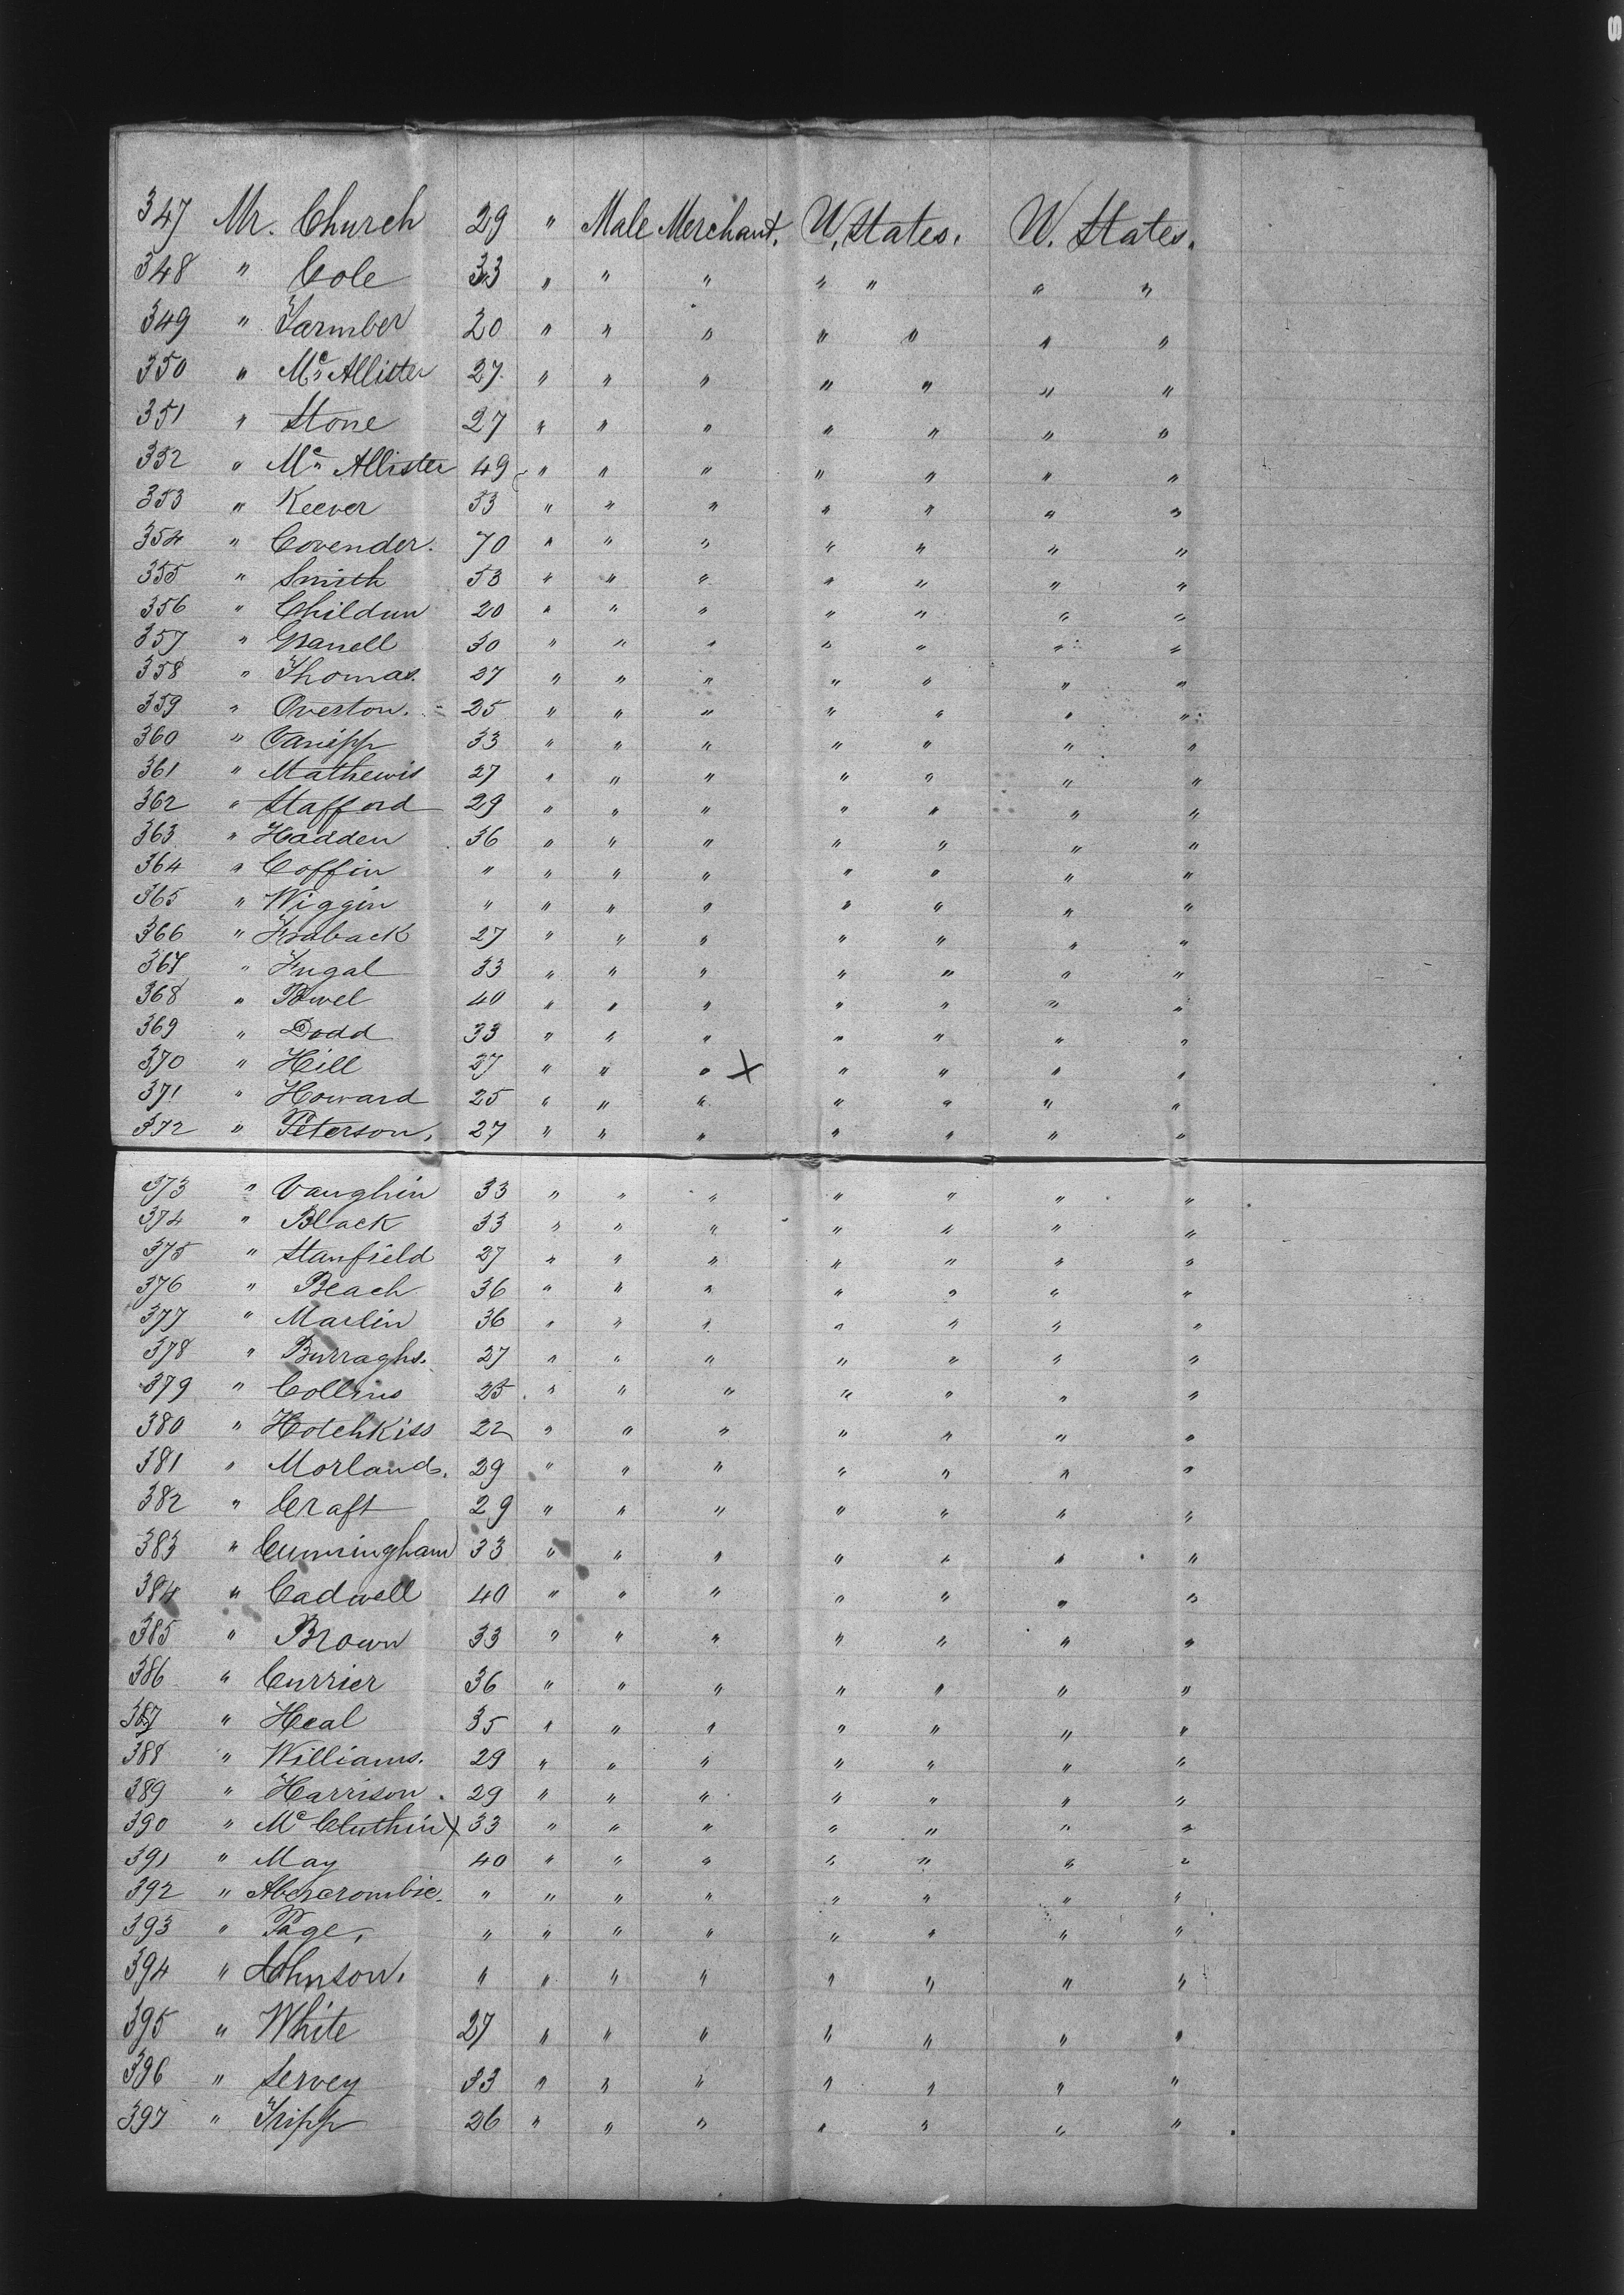 347 Mr. Church 29 " Male Merchant. U. States. U. States.
348 " Cole 33 " " " " " " "
349 " Farmber 20 " " " " " " "
350 " Mc Allister 27 " " " " " " "
351 " Stone 27 " " " " " " "
352 " Mc Allister 49 " " " " " " "
353 " Keever 53 " " " " " " "
354 " Covender. 70 " " " " " " "
355 " Smith 53 " " " " " " "
356 " Childun 20 " " " " " " "
357 " 30 " " " " " " "
358 " Thomas. 27 " " " " " " "
359 " Overton. 25 " " " " " " "
360 " Vanipp 33 " " " " " " "
361 " Mathewis 27 " " " " " " "
362 " Stafford 29 " " " " " " "
363 " Hadden 36 " " " " " " "
364 " Coffin " " " " " " " "
365 " Wiggin " " " " " " " "
366 " 27 " " " " " " "
367 " Fugal 33 " " " " " " "
368 " 40 " " " " " " "
369 " Dodd 33 " " " " " " "
370 " Hill 27 " " " X " " " "
371 " Howard 25 " " " " " " "
372 " Peterson, 27 " " " " " " "
373 " Vaughin 33 " " " " " " "
374 " Black 33 " " " " " " "
375 " Stanfield 27 " " " " " " "
376 " Beach 36 " " " " " " "
377 " Marlin 36 " " " " " " "
378 " Burraghs. 27 " " " " " " "
379 " Collins 25 " " " " " " "
380 " Hotchkiss 22 " " " " " " "
381 " Morland. 29 " " " " " " "
382 " Craft 29 " " " " " " "
383 " Cunningham 33 " " " " " " "
384 " Cadwell 40 " " " " " " "
385 " Brown 33 " " " " " " "
386 " Currier 36 " " " " " " "
387 " Heal 35 " " " " " " "
388 " Williams. 29 " " " " " " "
389 " Harrison. 29 " " " " " " "
390 " Mc Cluthin X 33 " " " " " " "
391 " May 40 " " " " " " "
392 " Abercrombie. " " " " " " " "
393 " Page, " " " " " " " "
394 " Johnson. " " " " " " " "
395 " White 27 " " " " " " "
396 " Servey 33 " " " " " " "
397 " Tripp 26 " " " " " " "